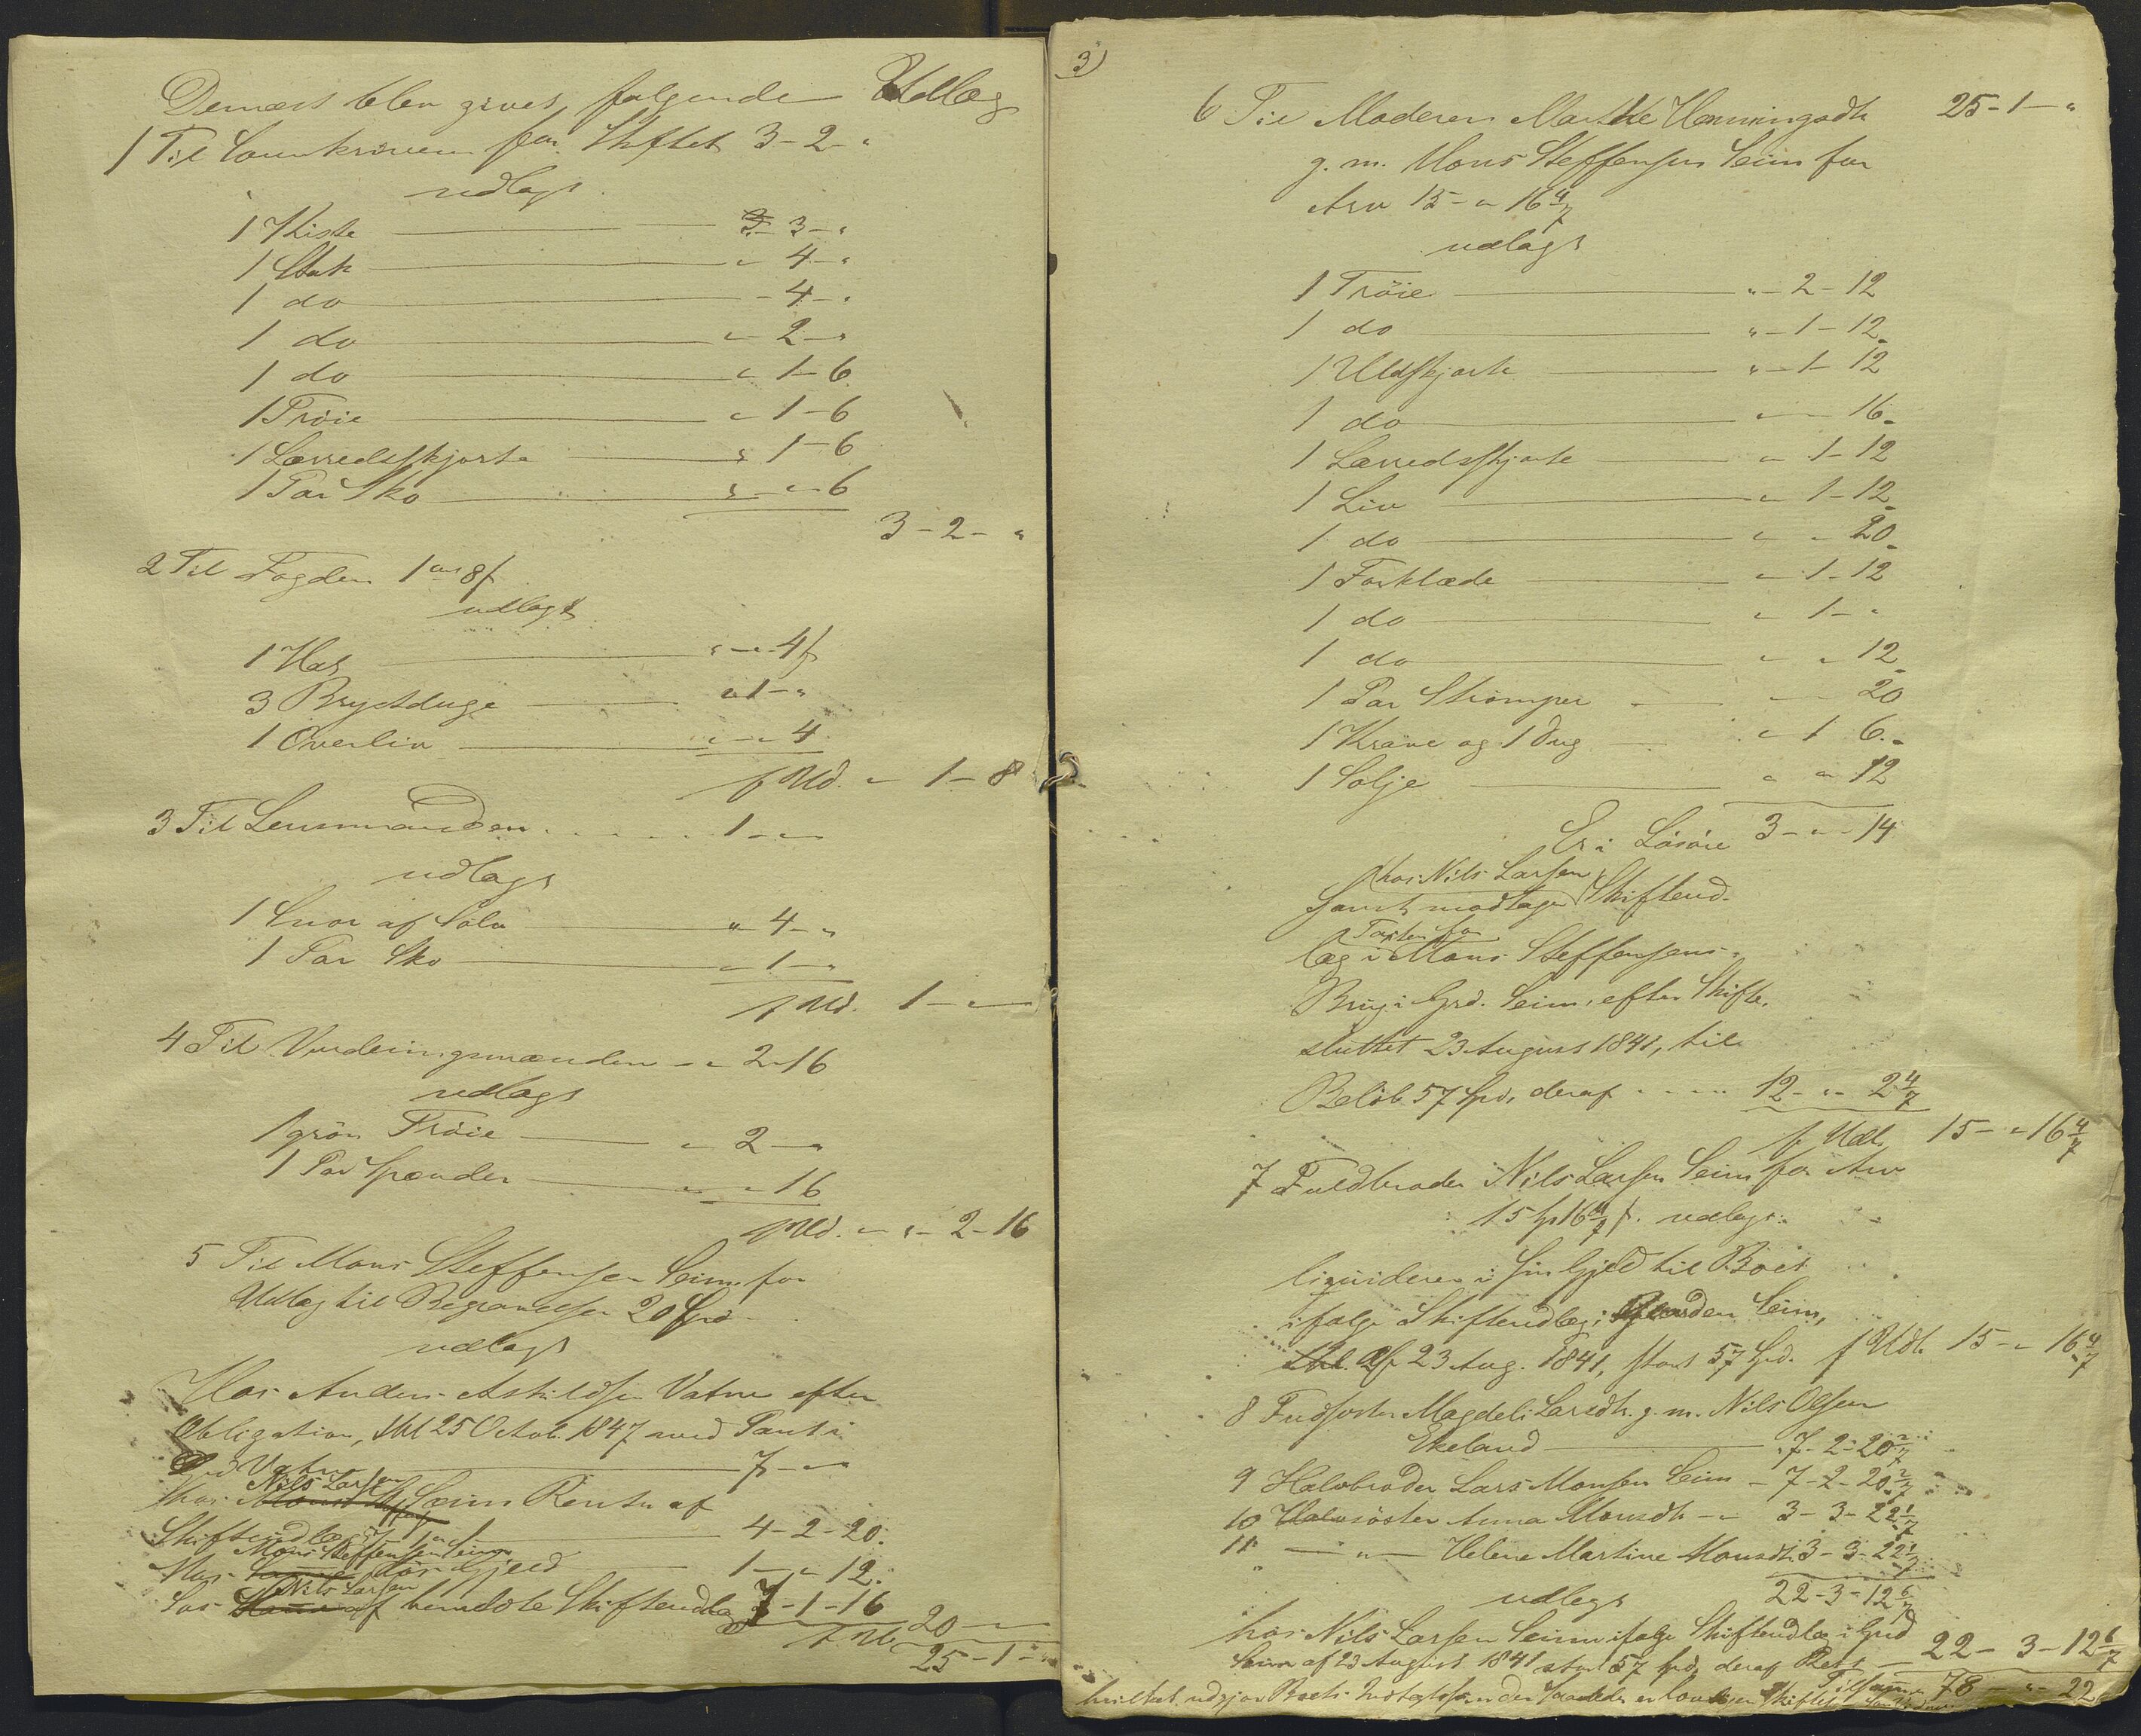 Dernæst blev givet følgende Udlæg
1 Til Sorenskriveren for Skiftet 3-2-"
udlagt
1 Kiste 3-"
1 Stak " 4-"
1 do - 4-"
1 do " 2-"
1 do " 1-6
1 Trøie " 1-6
1 Lærredsskjorte " 1-6
1 Par Sko " - " 6
3-2-"
2 Til Fogden 1 ort 8 f
udlagt
1 Hat " - " 4 f
3 Brystduge " 1-"
1 Overliv " - " 4
f Udl. " 1-8
3 Til Lensmanden 1-"-
udlagt
1 Snor af Sølv " 4-"
1 Par Sko " 1-"
f Udl. 1-"-
4 Til Vurderingsmænden - " 2-16
udlagt
1 grøn Trøie " 2-"
1 Par Spænder " - " 16
f Udl. - " - 2-16
5 Til Mons Steffensen Seim for
Udlæg til Begravelsen 20 Spd
udlagt
Hos Anders Askildsen Vatne efter
Obligation, thl 25 Octob. 1847 med Pant i
Grd Vatne 7-"-
Nils Larsen
hos Seim Rente af
Skifteudlæg 4-2-20.
Mons Steffensen Seim
Hos Gjeld 1-"-12.
Nils Larsen
hos af bemeldte Skifteudlæg 7-1-16
f. Udl. 20-"-
25-1-"
3)
6 Til Moderen Marthe Henningsdtr 25-1-"
g. m. Mons Steffensen Seim for
Arv 15-"-16 4/7
udlagt
1 Trøie " - 2-12
1 do " - 1-12
1 Uldskjorte " - 1-12
1 do " - 16
1 Lærredsskjorte " 1-12
1 Liv " 1-12
1 do " - 20
1 Forklæde " 1-12
1 do " 1-"
1 do " " 12
1 Par Strømper " - 20
1 Krave og 1 Dug " 1 6.
1 Sølje " " 12
Er i Løsøre 3-"-14
hos Nils Larsen
samt modtager Skifteud-
læg i Mons Steffensens
Brug i Grd. Seim, efter Skifte,
sluttet 23 August 1841, til
Beløb 57 Spd, deraf 12-"-2 4/7
f Udl. 15-"-16 4/7
7 Fuldbroder Nils Larsen Seim for Arv
15 sp 16 4/7 f. udlagt
liquideres i sin Gjeld til Boet
ifølge Skifteudlæg i Gaarden Seim,
af 23 Aug. 1841, stort 57 Spd. f Udl. 15-"-16 4/7
8 Fuldsøster Magdeli Larsdtr. g. m. Nils Olsen
Ekeland 7-2-20 2/7
9 Halvbroder Lars Monsen Seim - 7-2-20 2/7
10 Halvsøster Anna Monsdtr - " 3-3-22 1/7
11 " - " - Helene Martine Monsdtr 3-3-22 1/7
22-3-12 6/7
udlagt
hos Nils Larsen Seim ifølge Skifteudlæg i Grd
Seim af 23 August 1841 stort 57 Spd, deraf Rest 22-3-12 6/7
Tilsammen 78-"-22
hvilket udgjør Boets